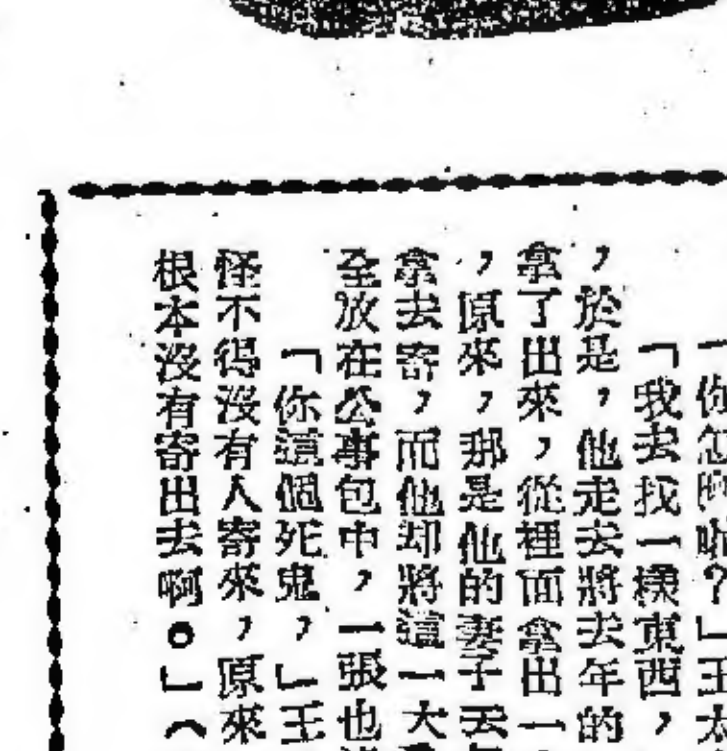 「你怎麽啦?」王太
「我去找一樣東西,
,於是,他走去將去年的
拿了出來,從裡面拿出一
,原來,那是他的妻子去年
拿去寄,而他却將這一大
全放在公事包中,一張也
「你這個死鬼,」王
怪不得沒有人寄來,原來
根本沒有寄出去啊。」(